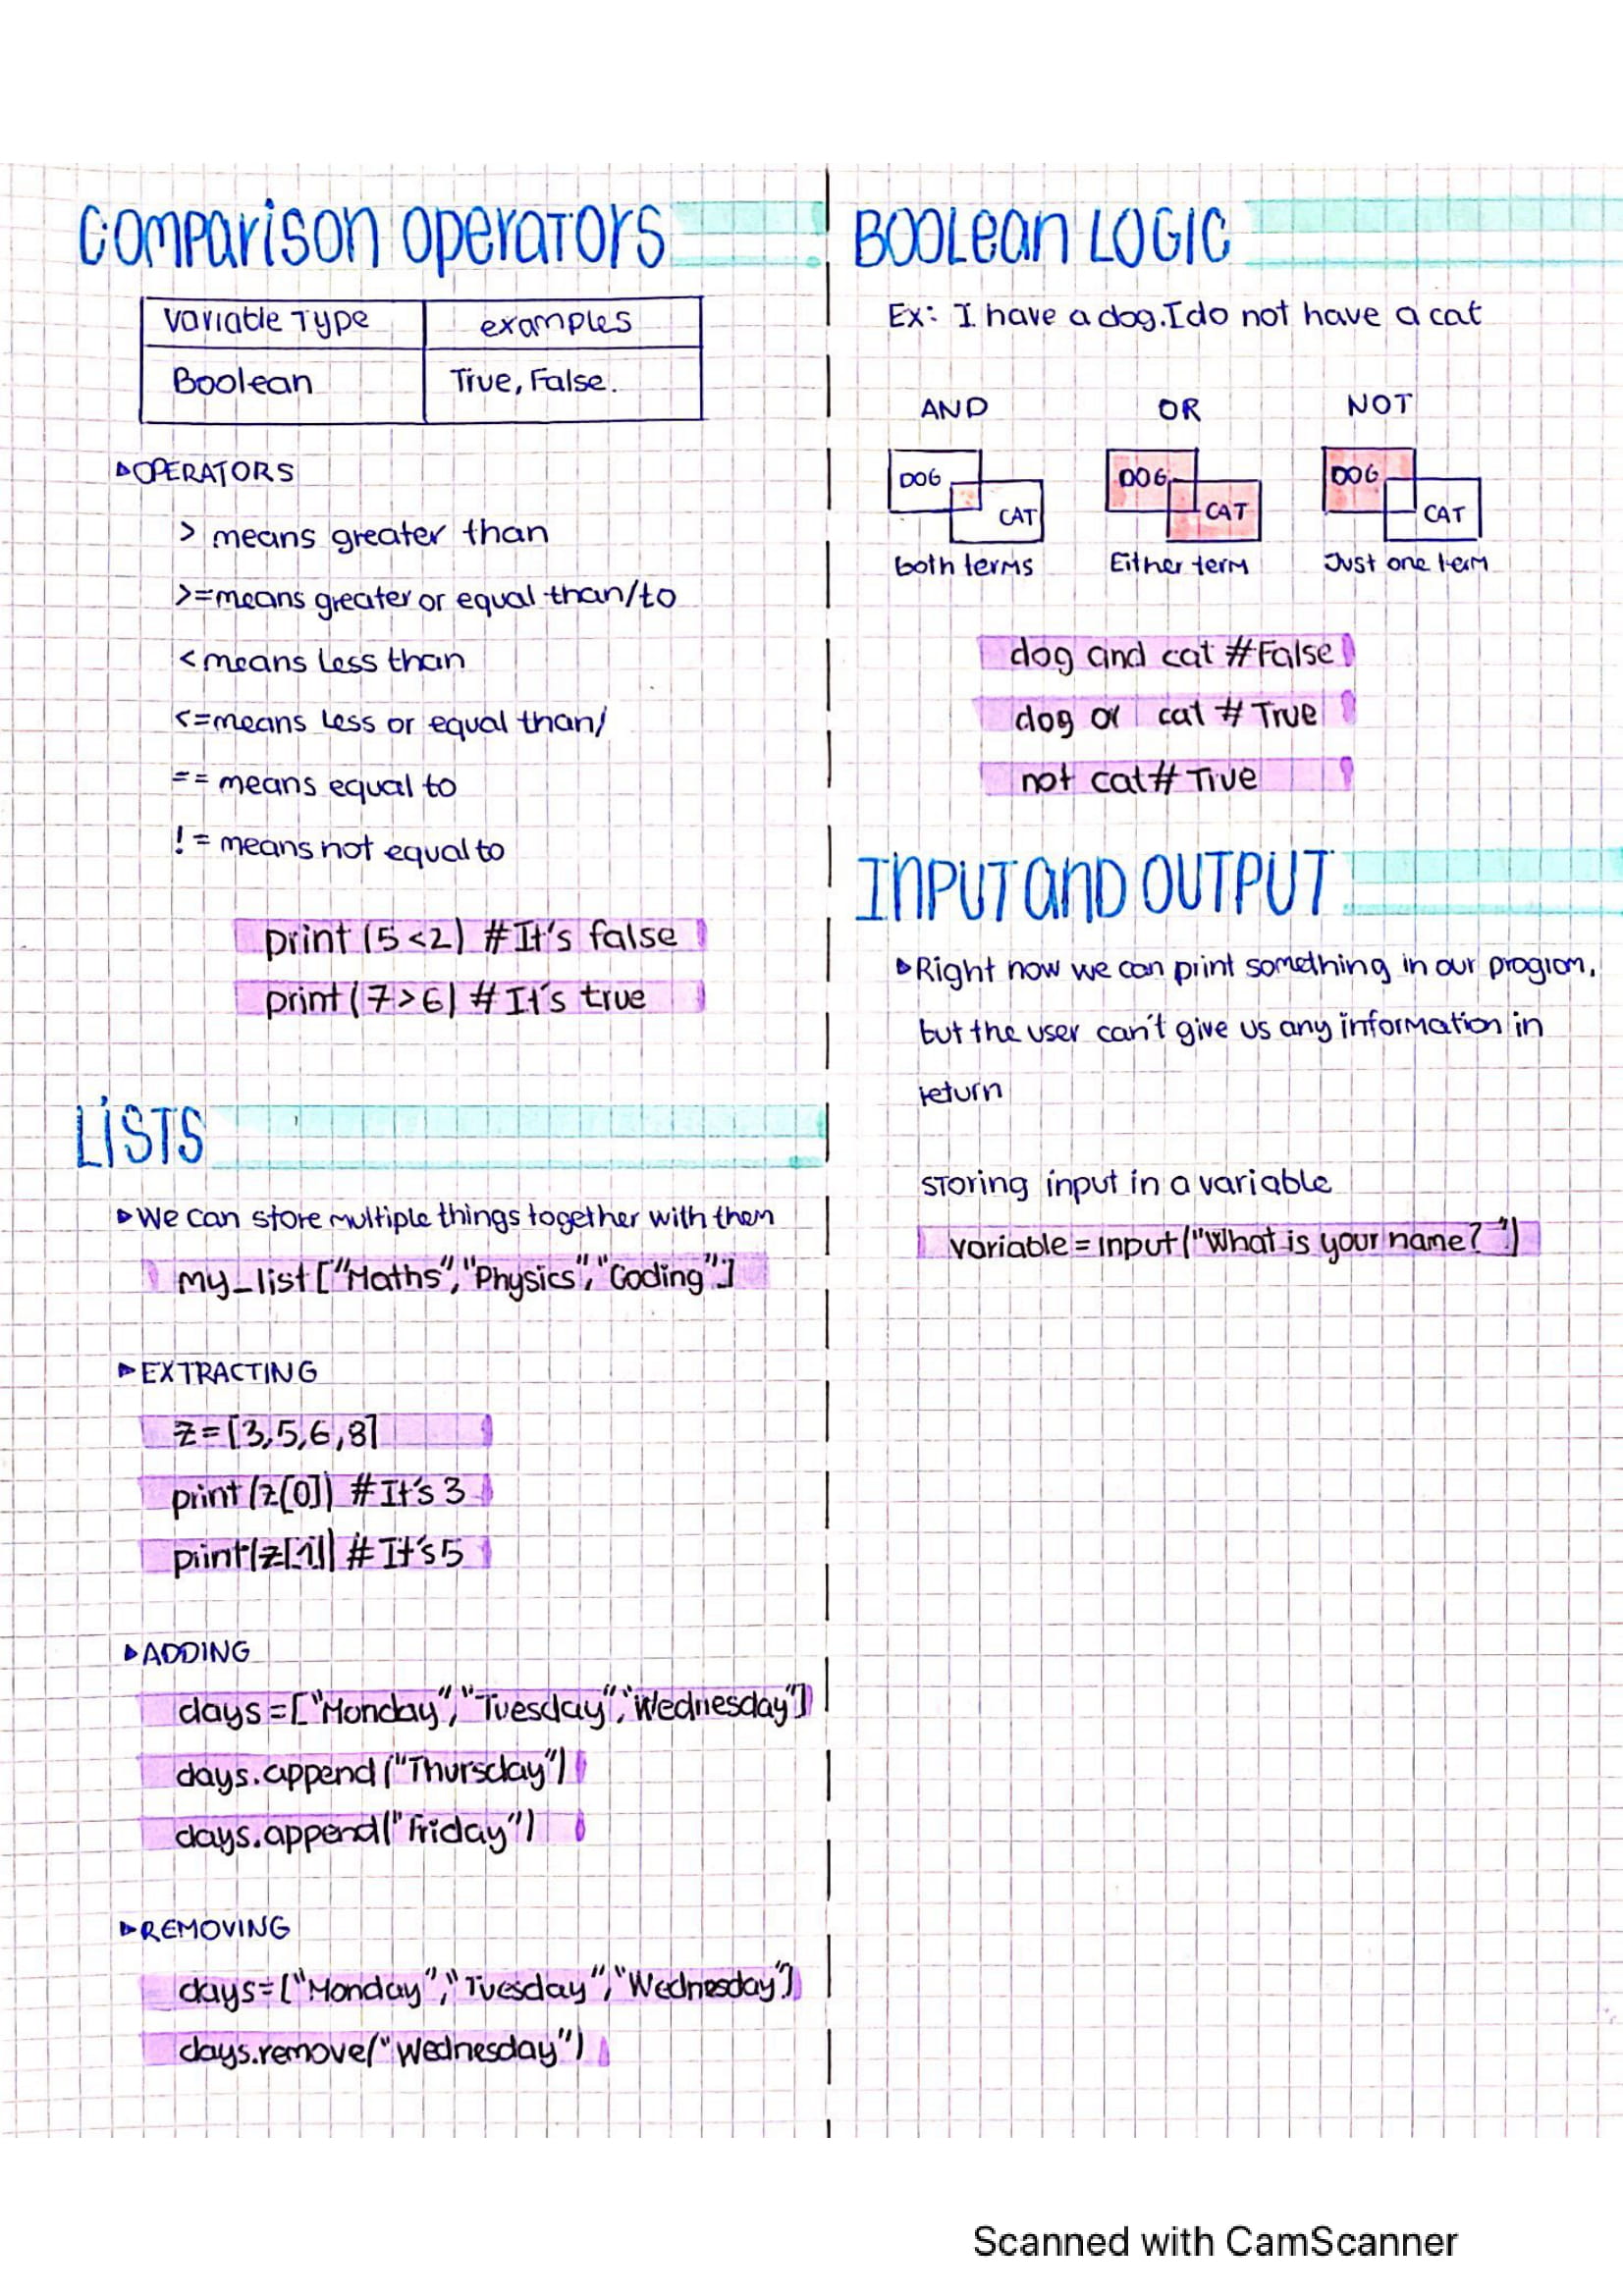 Comparison operators
Variable Type examples
Boolean True, False.
OPERATORS
> means greater than
>=means greater or equal than/to
<means less than
<=means less or equal than/
== means equal to
!= means not equal to
print (5<2) #It's false
print (7>6) #It's true
LISTS
We can store multiple things together with them
my_list ["Maths","Physics","Coding"]
EXTRACTING
z=[3,5,6,8]
print(z[0]) #It's 3
print(z[1]) #It's 5
ADDING
days=["Monday","Tuesday","Wednesday"]
days.append("Thursday")
days.append("Friday")
REMOVING
days=["Monday","Tuesday","Wednesday"]
days.remove("Wednesday")
BOOLean LOGIC
Ex: I have a dog. I do not have a cat
AND OR NOT
DOG DOG DOG
CAT CAT CAT
both terms Either term Just one term
dog and cat #False
dog or cat #True
not cat #True
INPUT and OUTPUT
Right now we can print something in our program,
but the user can't give us any information in
return
storing input in a variable
variable = input("What is your name? ")
Scanned with CamScanner